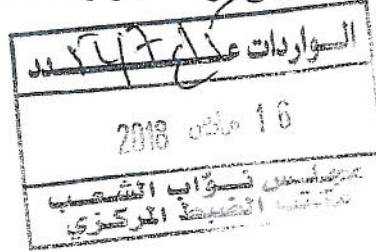 الـواردات عـدد
16 مارس 2018
مجلس نـوّاب الشعـب
مكتب الضبط المركزي